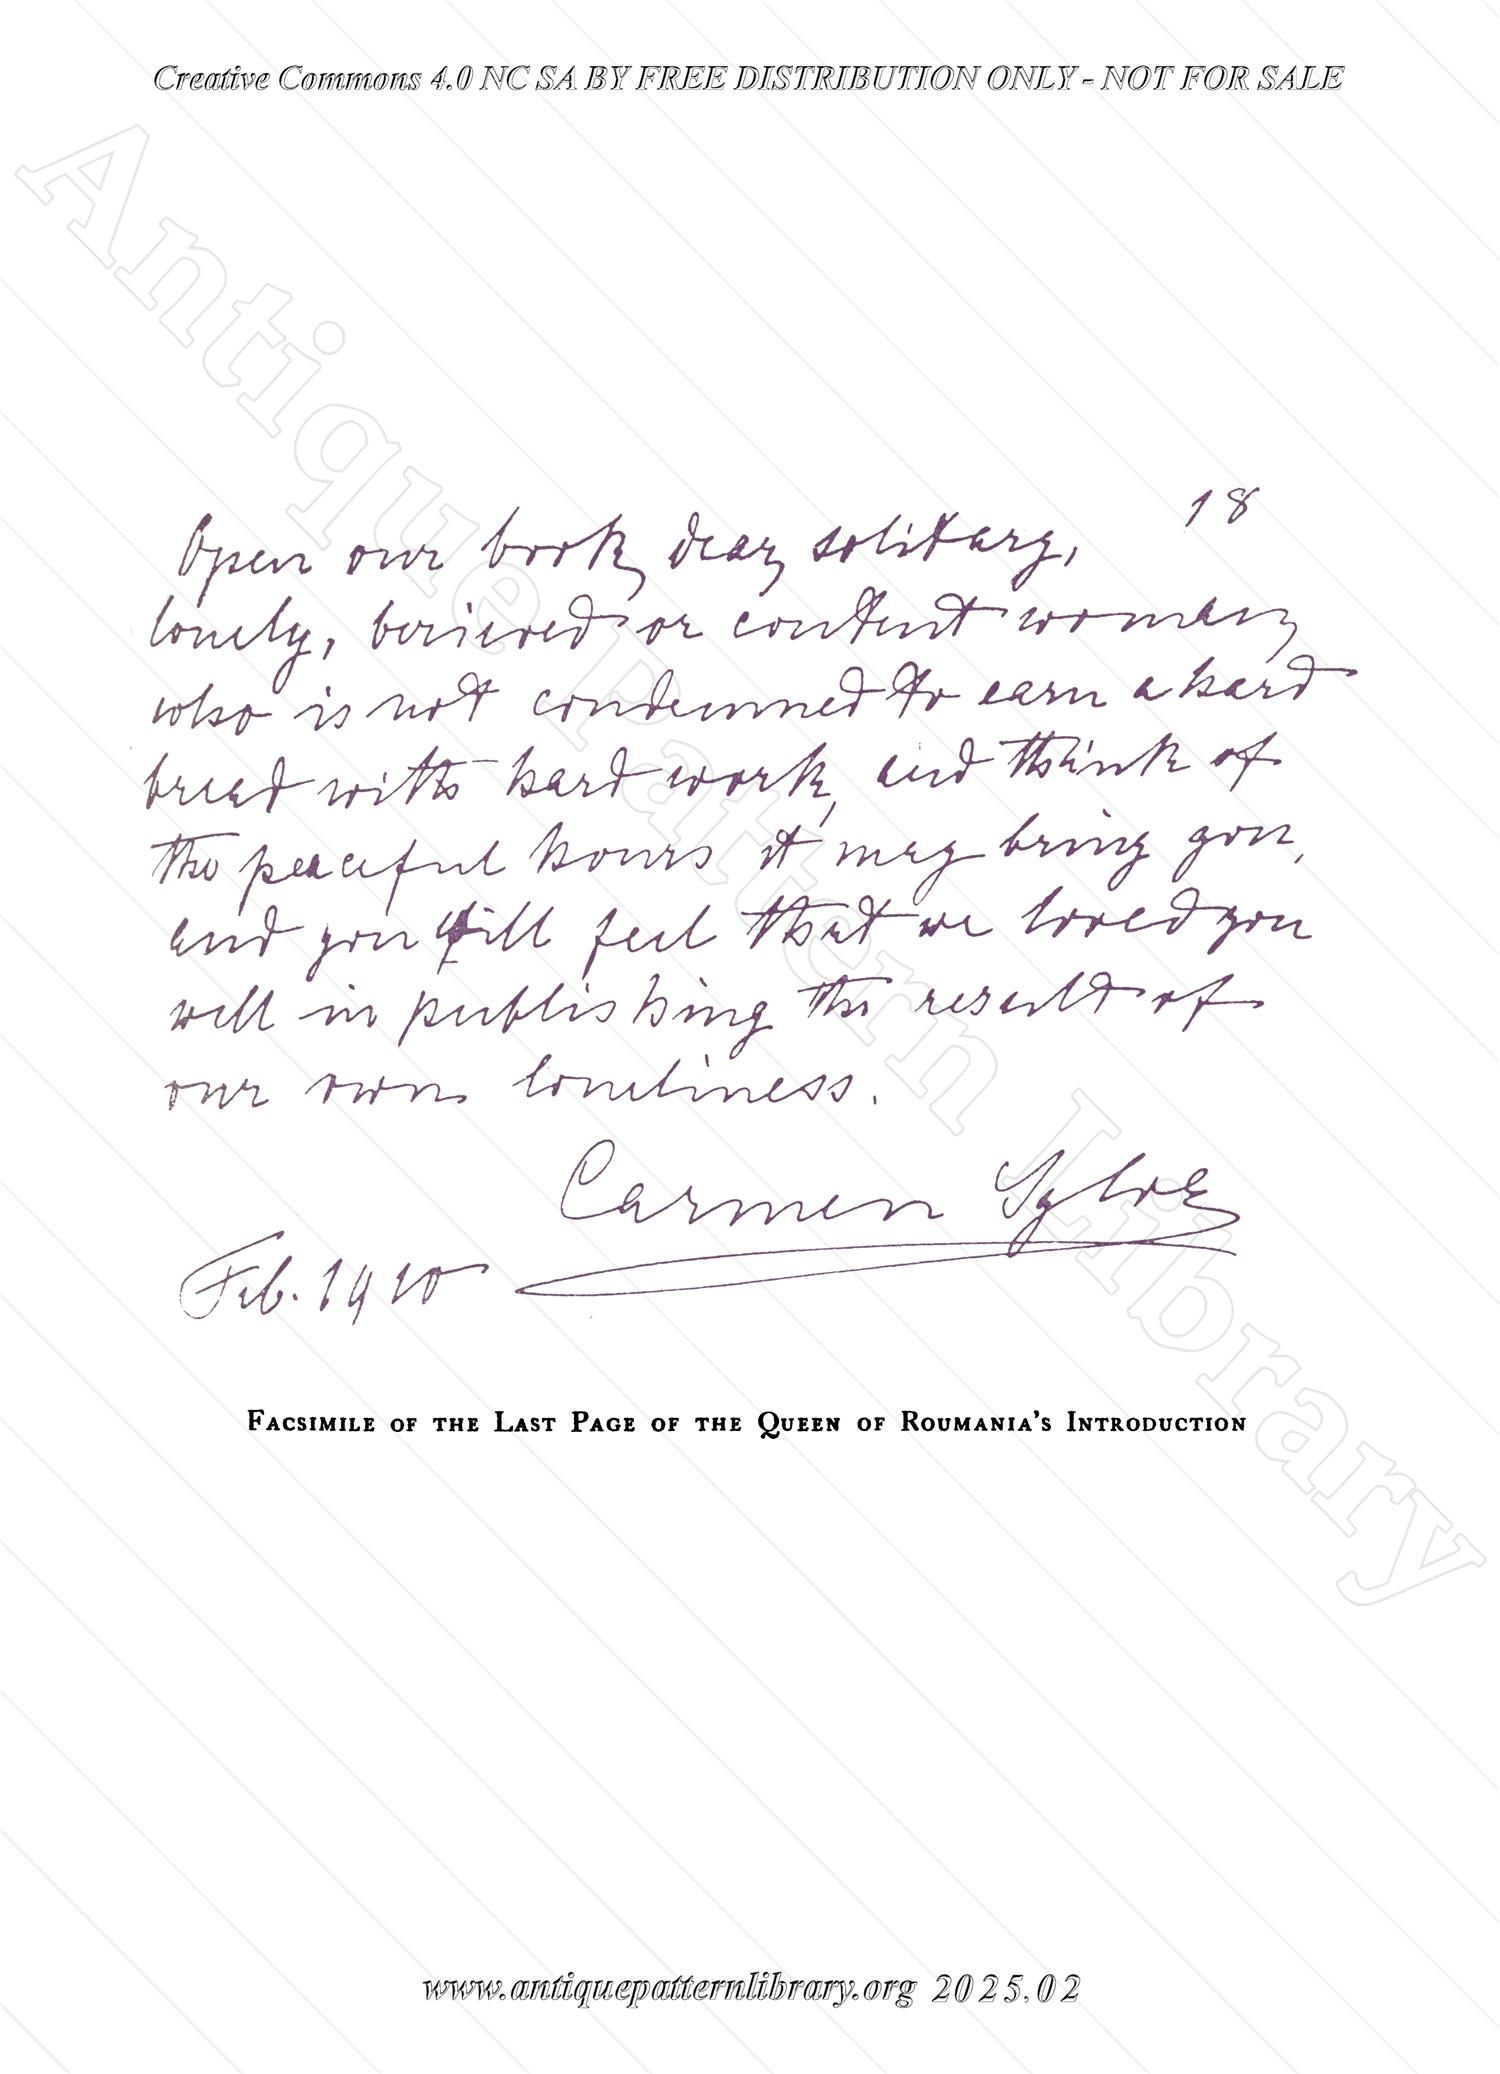 Creative Commons 4.0 NC SA BY FREE DISTRIBUTION ONLY - NOT FOR SALE
18
Open our book, dear, solitary,
lonely, berieved or content woman,
who is not condemned to earn a hard
bread with hard work, and think of
the peaceful hours it may bring you,
and you will feel that we loved you
well in publishing the result of
our own loneliness.
Carmen Sylva
Feb. 1910
Facsimile of the Last Page of the Queen of Roumania's Introduction
Antique Pattern Library
www.antiquepatternlibrary.org 2025.02